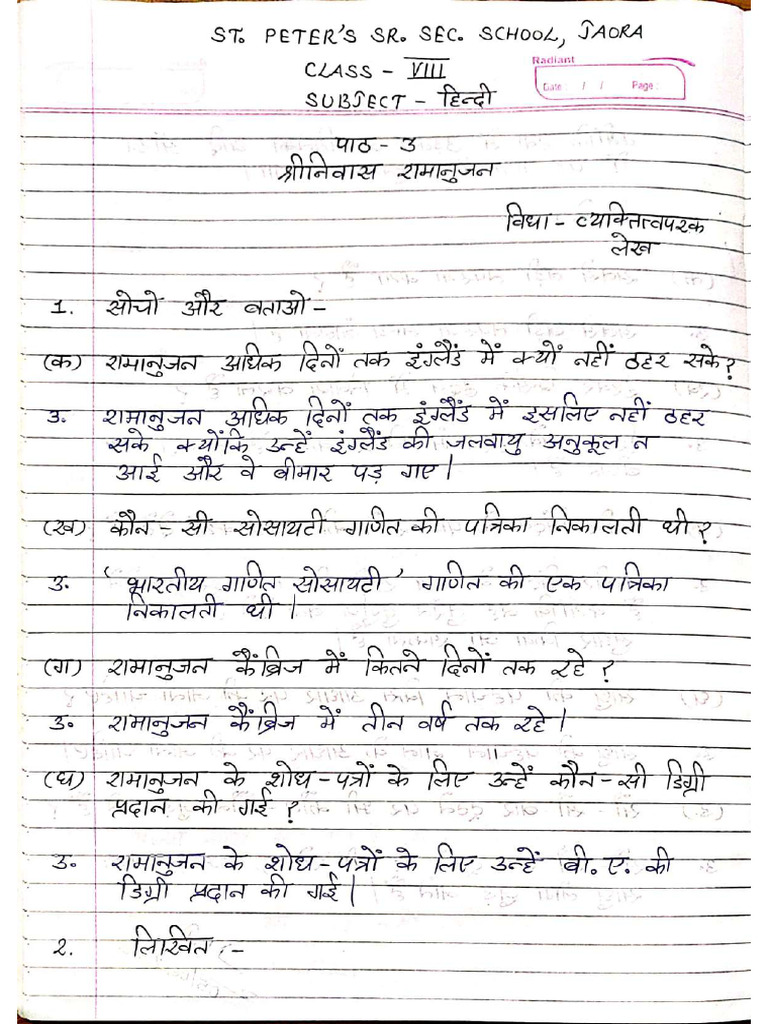 ST. PETER'S SR. SEC. SCHOOL, JAORA
CLASS - VIII
Radiant
Date / / Page:
SUBJECT - हिन्दी
पाठ - 3
श्रीनिवास रामानुजन
विधा - व्यक्तित्वपरक
लेख
1. सोचो और बताओ -
(क) रामानुजन अधिक दिनों तक इंग्लैंड में क्यों नहीं ठहर सके?
उ. रामानुजन अधिक दिनों तक इंग्लैंड में इसलिए नहीं ठहर
सके क्योंकि उन्हें इंग्लैंड की जलवायु अनुकूल न
आई और वे बीमार पड़ गए।
(ख) कौन - सी सोसायटी गणित की पत्रिका निकालती थी?
उ. 'भारतीय गणित सोसायटी' गणित की एक पत्रिका
निकालती थी।
(ग) रामानुजन कैंब्रिज में कितने दिनों तक रहे?
उ. रामानुजन कैंब्रिज में तीन वर्ष तक रहे।
(घ) रामानुजन के शोध-पत्रों के लिए उन्हें कौन-सी डिग्री
प्रदान की गई?
उ. रामानुजन के शोध-पत्रों के लिए उन्हें बी.ए. की
डिग्री प्रदान की गई।
2. लिखित :-